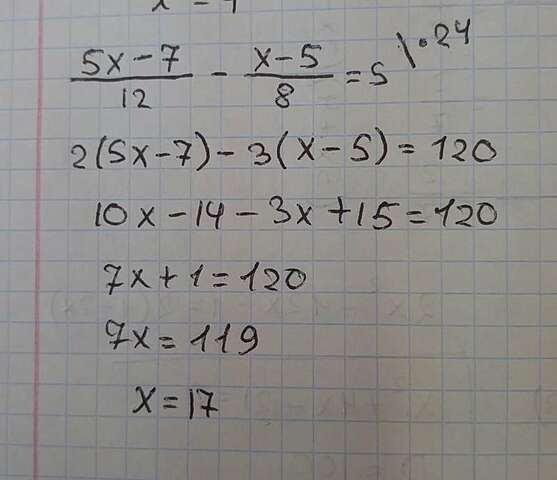 (5x-7)/12 - (x-5)/8 = 5 \·24
2(5x-7)-3(x-5)=120
10x-14-3x+15=120
7x+1=120
7x=119
x=17